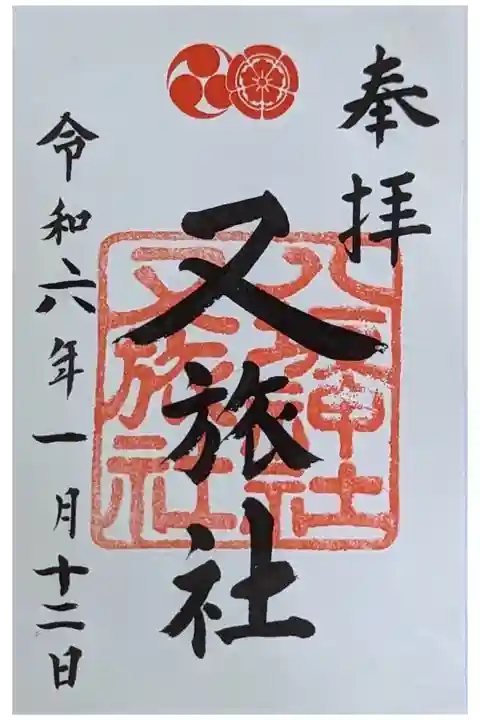 奉拝
又旅社
八坂神社
又旅社
令和六年一月十二日